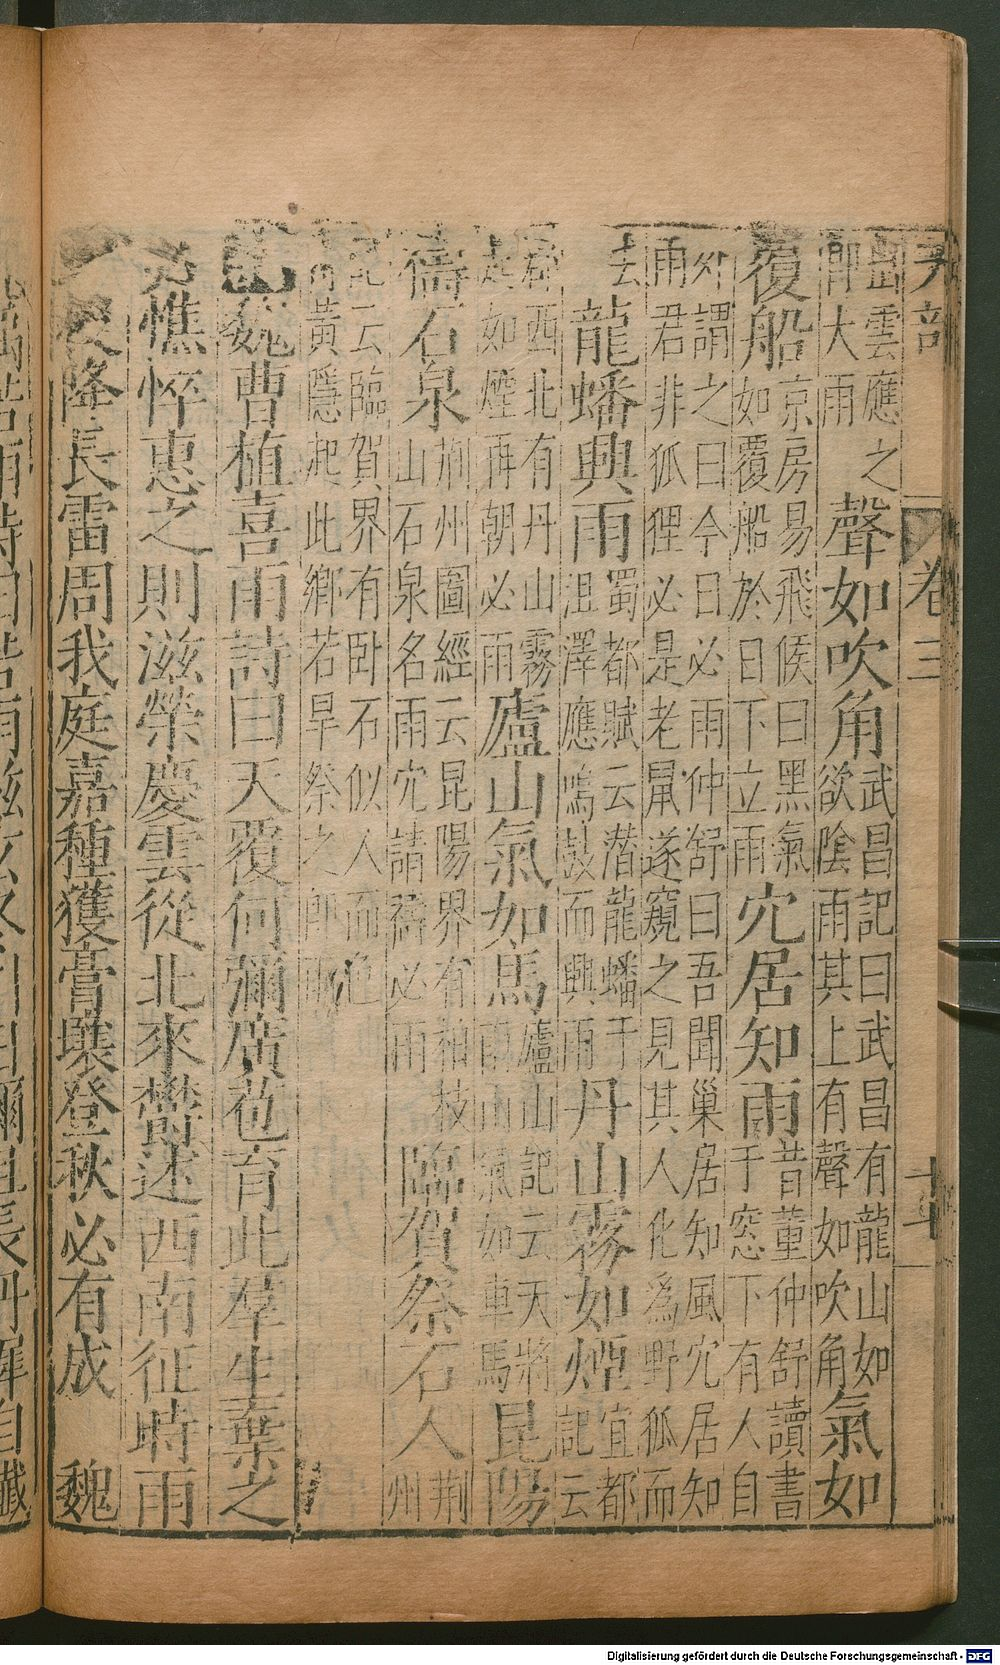 天部 卷三 十七
雲應之
大雨
聲如吹角
武昌記曰武昌有龍山如
欲陰雨其上有聲如吹角
氣如
覆船
京房易飛候曰黑氣
如覆船於日下立雨
穴居知雨
昔董仲舒讀書
于窓下有人自
外謂之曰今日必雨仲舒曰吾聞巢居知風穴居知
雨君非狐狸必是老鼠遂窺之見其人化為野狐而
去
龍蟠興雨
蜀都賦云潛龍蟠于
沮澤應鳴鼓而興雨
丹山霧如煙
宜都
記云
郡西北有丹山霧
起如煙再朝必雨
廬山氣如馬
廬山記云天將
雨山氣如車馬
昆陽
禱石泉
荊州圖經云昆陽界有柏枝
山石泉名雨穴請禱必雨
臨賀祭石人
荊
州
記云臨賀界有卧石似人而色
青黃隱起此鄉若旱祭之即雨
魏曹植喜雨詩曰天覆何彌廣苞育此羣生棄之
必憔悴惠之則滋榮慶雲從北來鬱述西南征時雨
降長雷周我庭嘉種獲膏壤登秋必有成 魏
Digitalisierung gefördert durch die Deutsche Forschungsgemeinschaft - DFG